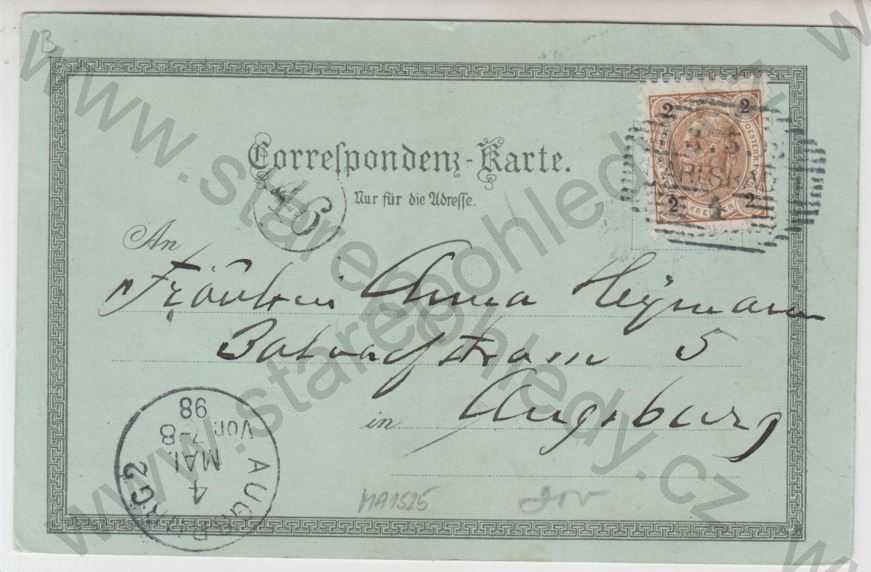 B
Correspondenz-Karte.
Nur für die Adresse.
46
2 2
3/5
2 2
An
Fräulein Anna Heymann
5
in Augsburg
AUGSBURG 2
4
MAI.
Vor. 7-8
98
MA1525
www.starepohledy.cz